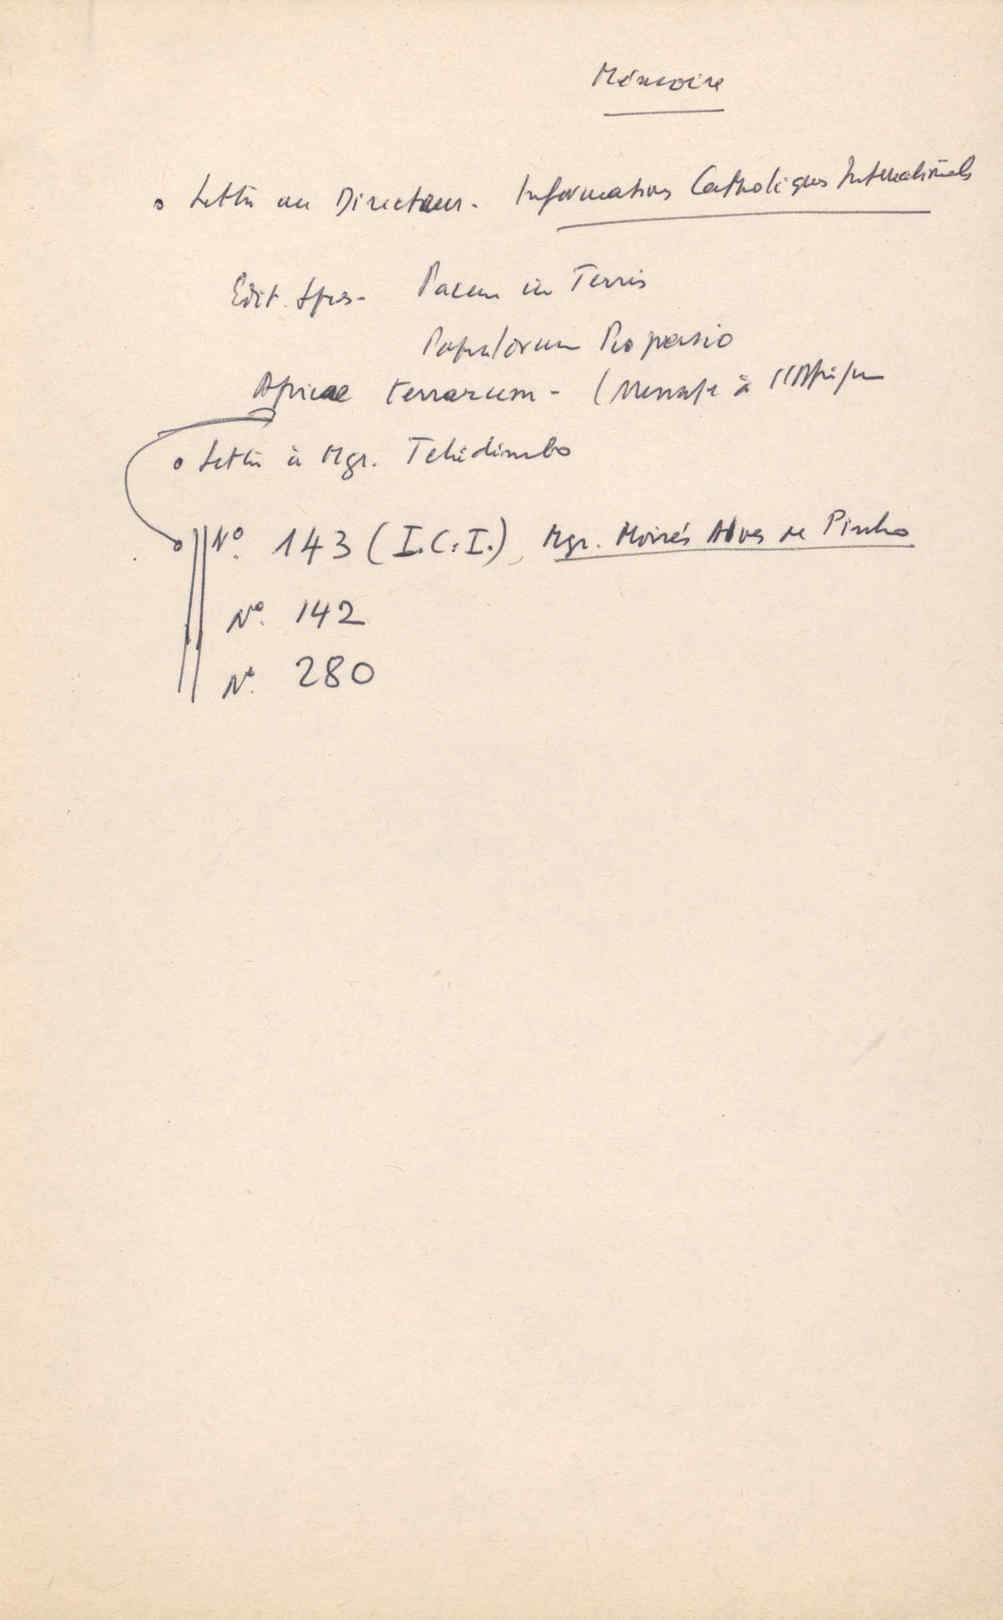 Mémoire
Lettre au Directeur - Informations Catholiques Internationales
Edit. Spes - Pacem in Terris
Populorum Progressio
Africae terrarum - (Message à l'Afrique
Lettre à Mgr. Tchidimbo
Nº. 143 (I.C.I.), Mgr. Moisés Alves de Pinho
Nº. 142
Nº. 280